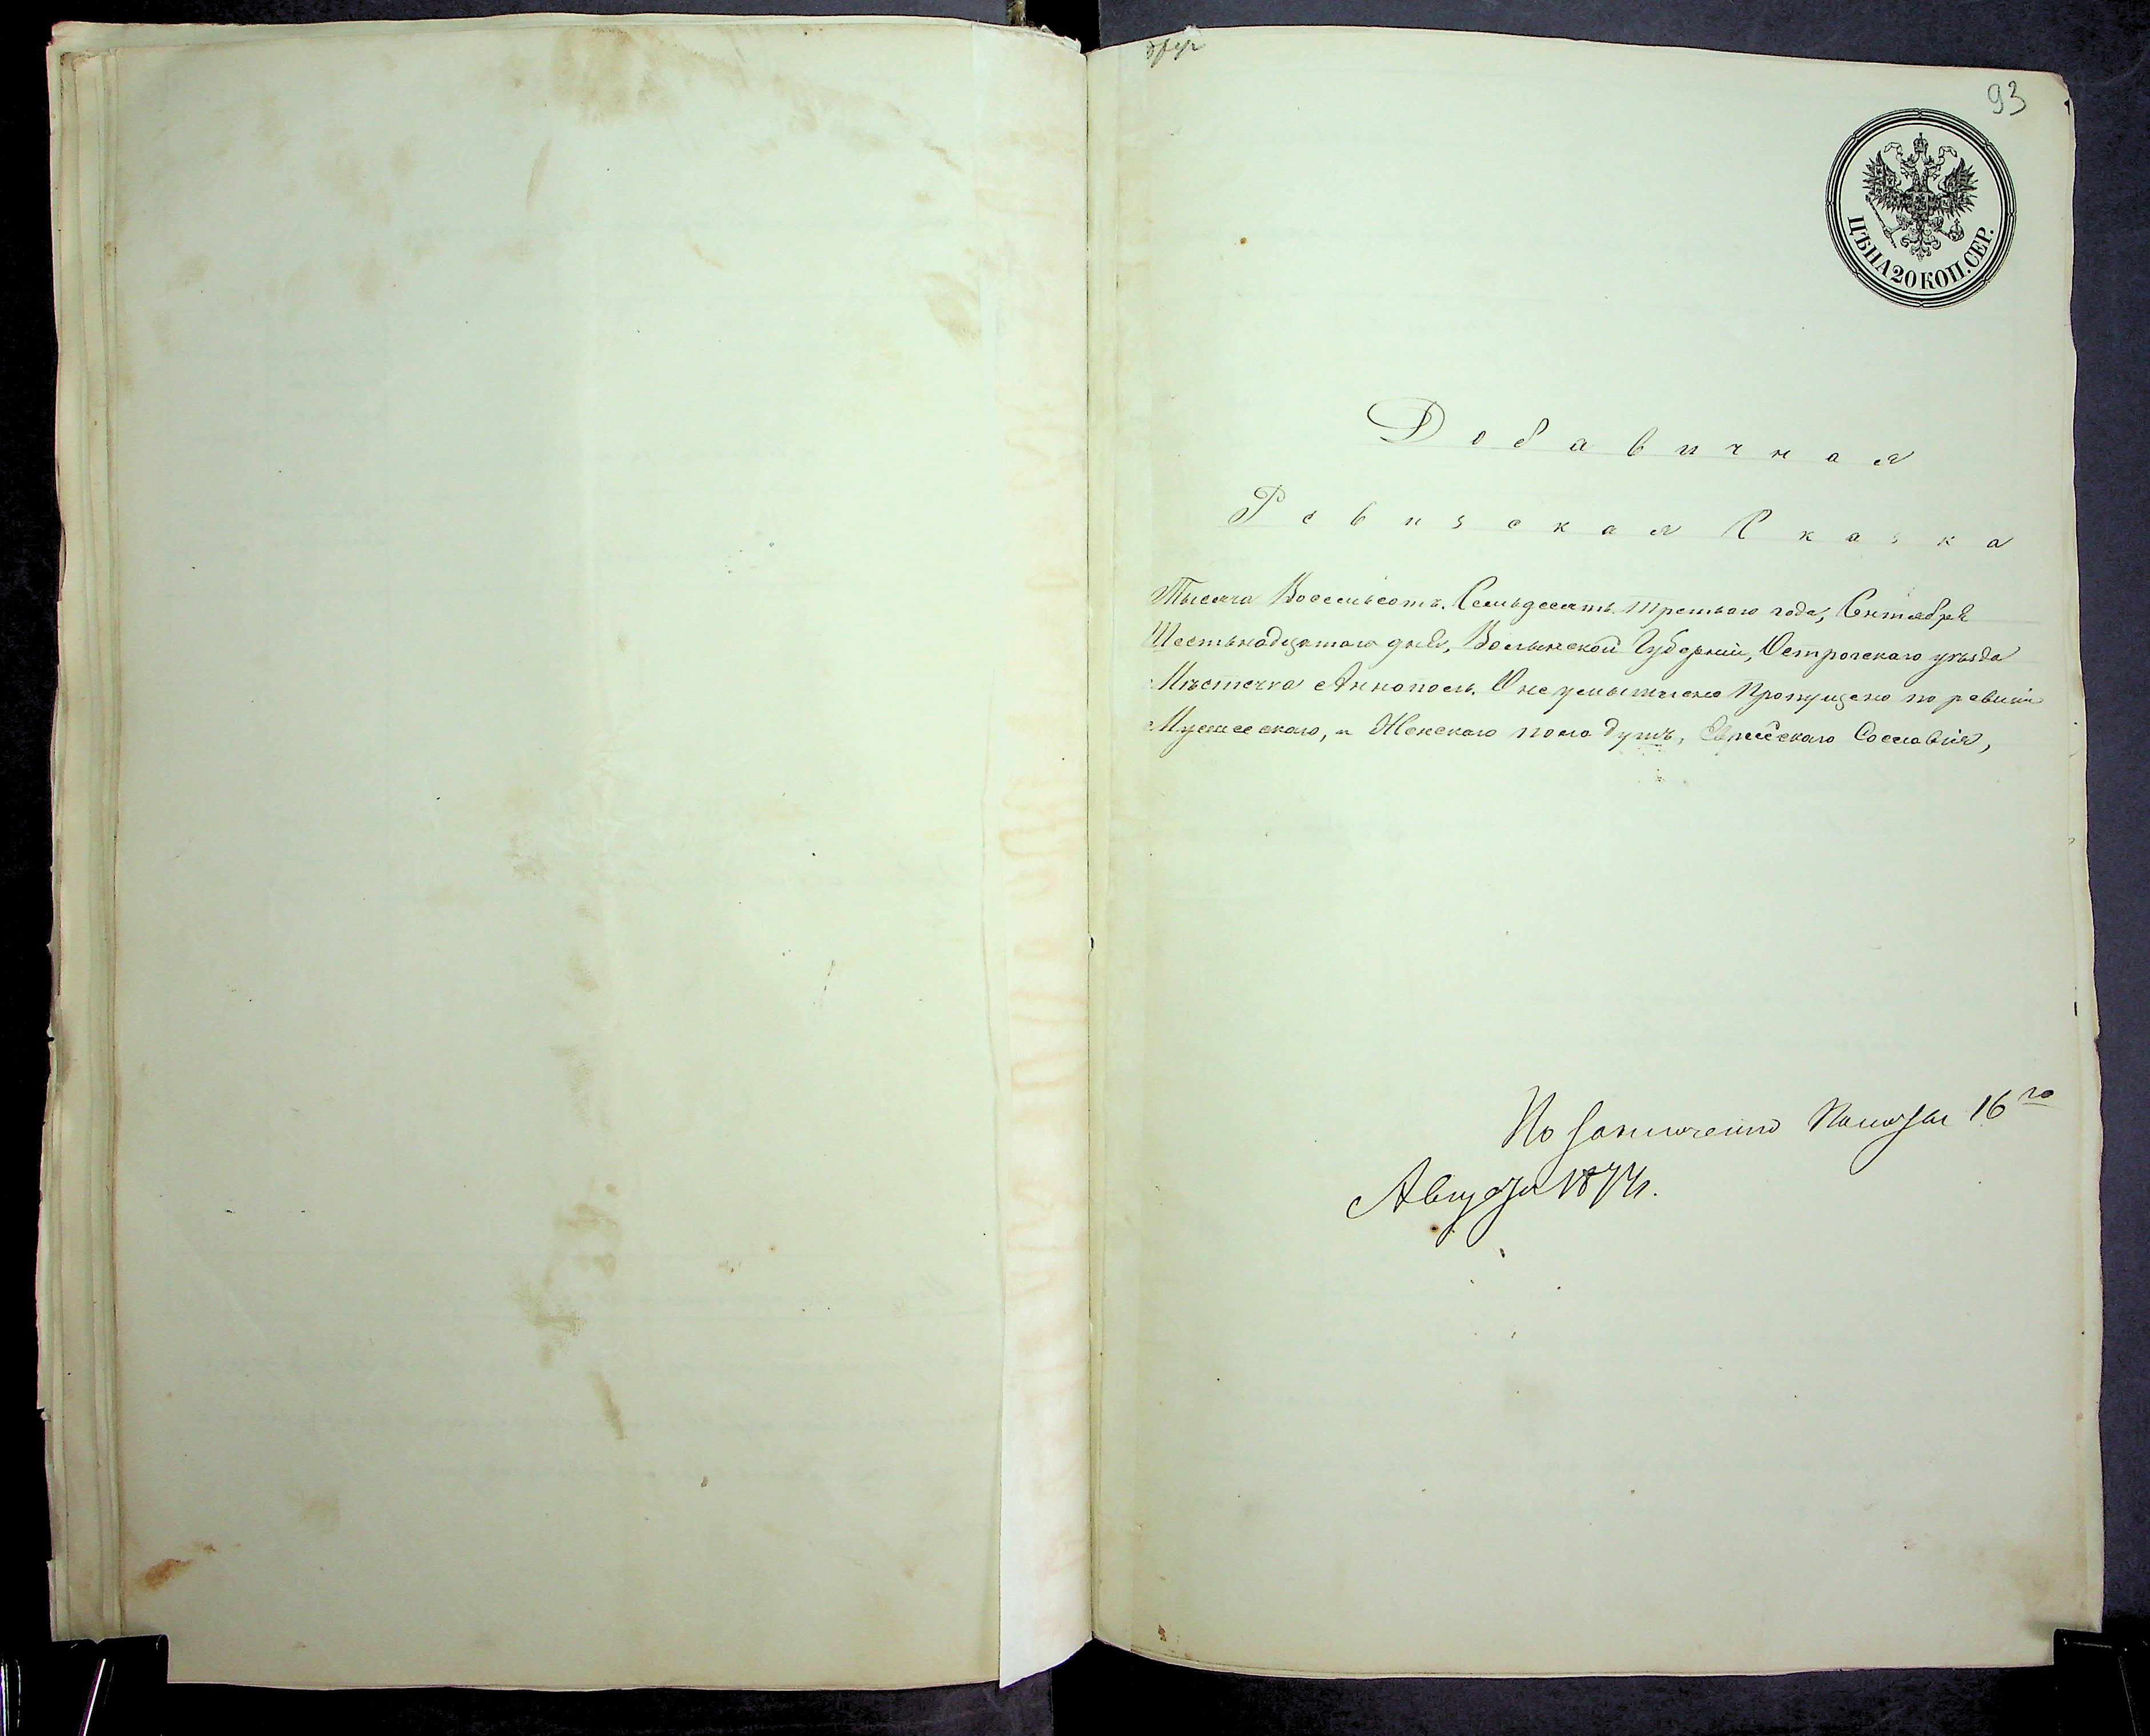 93
ЦѢНА 20 КОП. СЕР.
Добавичная
Ревизская Сказка
Тысяча Восемьсотъ Семьдесятъ третьего года, Сентября
Шестьнадцатаго дня, Волынской Губерніи, Острогскаго уѣзда
Мѣстечка Аннополь. О неумышлено Пропущено по ревизіи
Мужескаго, и Женскаго пола душъ, Еврейскаго Сословія,
По заключенію Палаты 16го
Августа 1874г.